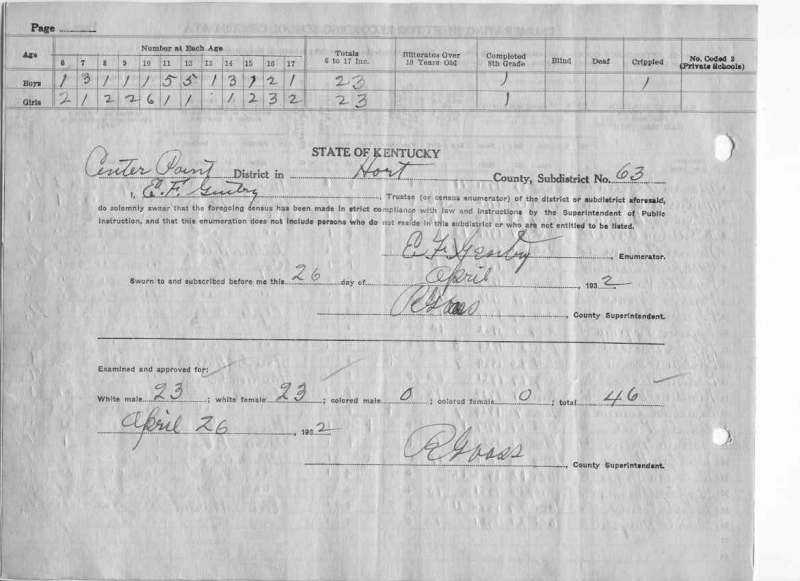 Page
Age Number at Each Age Totals 6 to 17 Inc. Illiterates Over 18 Years Old Completed 8th Grade Blind Deaf Crippled No. Coded 2 (Private Schools)
6 7 8 9 10 11 12 13 14 15 16 17
Boys 1 3 1 1 1 5 5 1 3 1 2 1 23 1 1
Girls 2 1 2 2 6 1 1 1 2 3 2 23 1
STATE OF KENTUCKY
Center Point District in Hart County, Subdistrict No. 63
I, E.F. , Trustee (or census enumerator) of the district or subdistrict aforesaid,
do solemnly swear that the foregoing census has been made in strict compliance with law and instructions by the Superintendent of Public
Instruction, and that this enumeration does not include persons who do not reside in this subdistrict or who are not entitled to be listed.
E F , Enumerator.
Sworn to and subscribed before me this 26 day of April , 1932
, County Superintendent.
Examined and approved for:
White male 23 ; white female 23 ; colored male 0 ; colored female 0 ; total 46
April 26 , 1932
, County Superintendent.